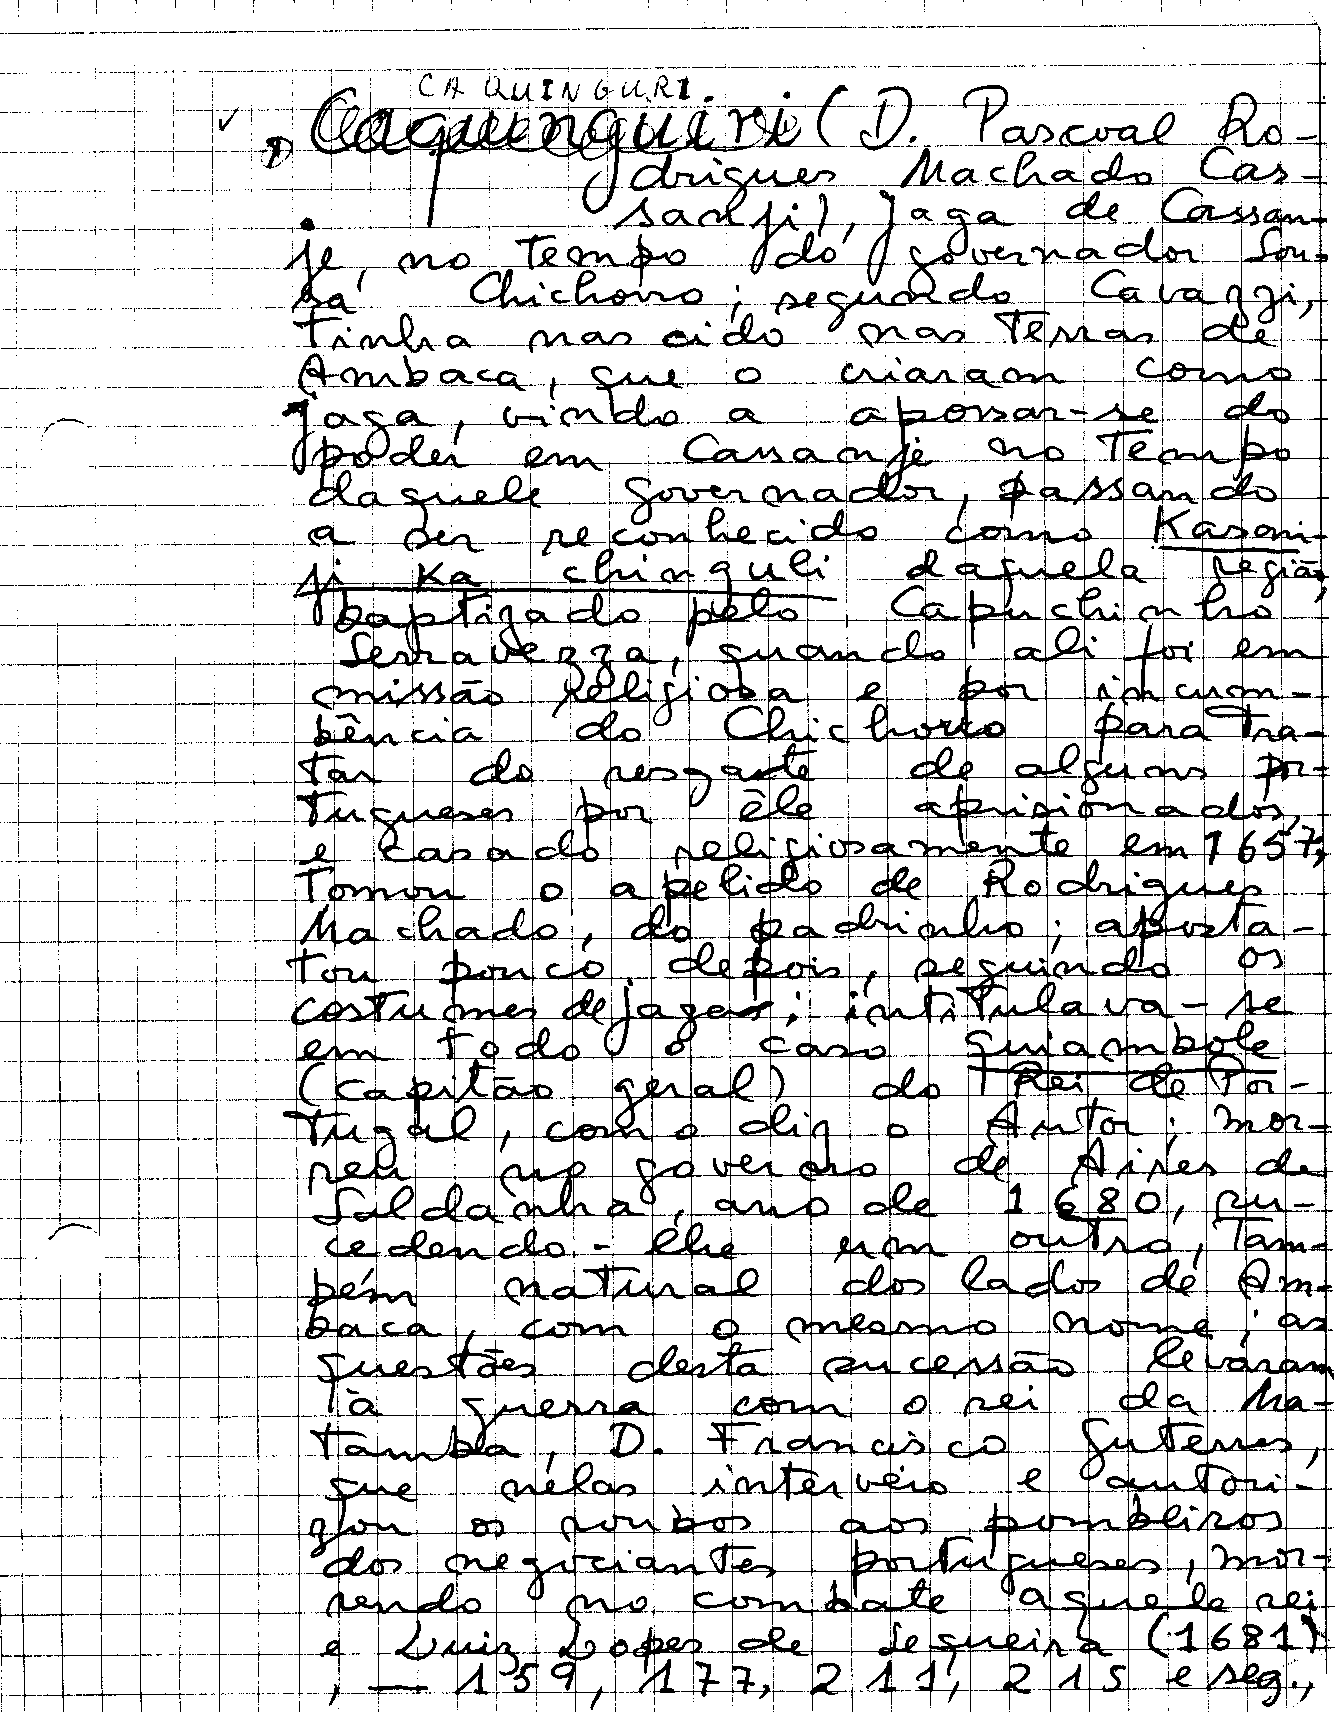 CAQUINGURI
Caquinguiri (D. Pascoal Ro-
drigues Machado Cas-
sanji), jaga de Cassan-
je, no tempo do governador Sou-
sa Chichorro; segundo Cavazzi,
tinha nascido nas terras de
Ambaca, que o criaram como
jaga, vindo a apossar-se do
poder em Cassanje no tempo
daquele governador, passando
a ser reconhecido como Kasan-
ji Ka chinguli daquela região,
baptizado pelo Capuchinho
Serravezza, quando ali foi em
missão religiosa e por incum-
bência do Chichorro para tra-
tar do resgate de alguns por-
tugueses por êle aprisionados,
e casado religiosamente em 1657,
tomou o apelido de Rodrigues
Machado, do padrinho; aposta-
tou pouco depois, seguindo os
costumes de jagas; intitulava-se
em todo o caso quiambole
(capitão geral) do Rei de Por-
tugal, como diz o Autor; mor-
reu no governo de Aires de
Saldanha, ano de 1680, su-
cedendo-lhe um outro, tam-
bém natural dos lados de Am-
baca, com o mesmo nome; as
questões desta sucessão levaram
à guerra com o rei da Ma-
tamba, D. Francisco Guterres,
que nelas interveio e autori-
zou os roubos aos pombeiros
dos negociantes portugueses, mor-
rendo no combate aquele rei
e Luiz Lopes de Sequeira (1681)
, — 159, 177, 211, 215 e seg.,